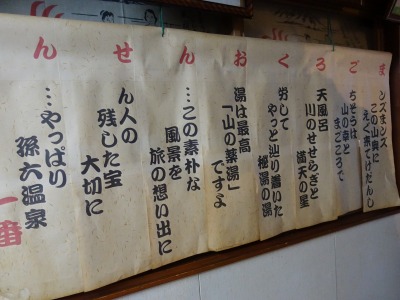 まごろくおんせん
ンズまンズ
この山奥に
えぐきてけだんし
ちそうは
山の幸と
まごころで
天風呂
川のせせらぎと
満天の星
労して
やっと辿り着いた
秘湯の湯
湯は最高
「山の薬湯」
ですよ
…この素朴な
風景を
旅の想い出に
ん人の
残した宝
大切に
…やっぱり
孫六温泉
一番